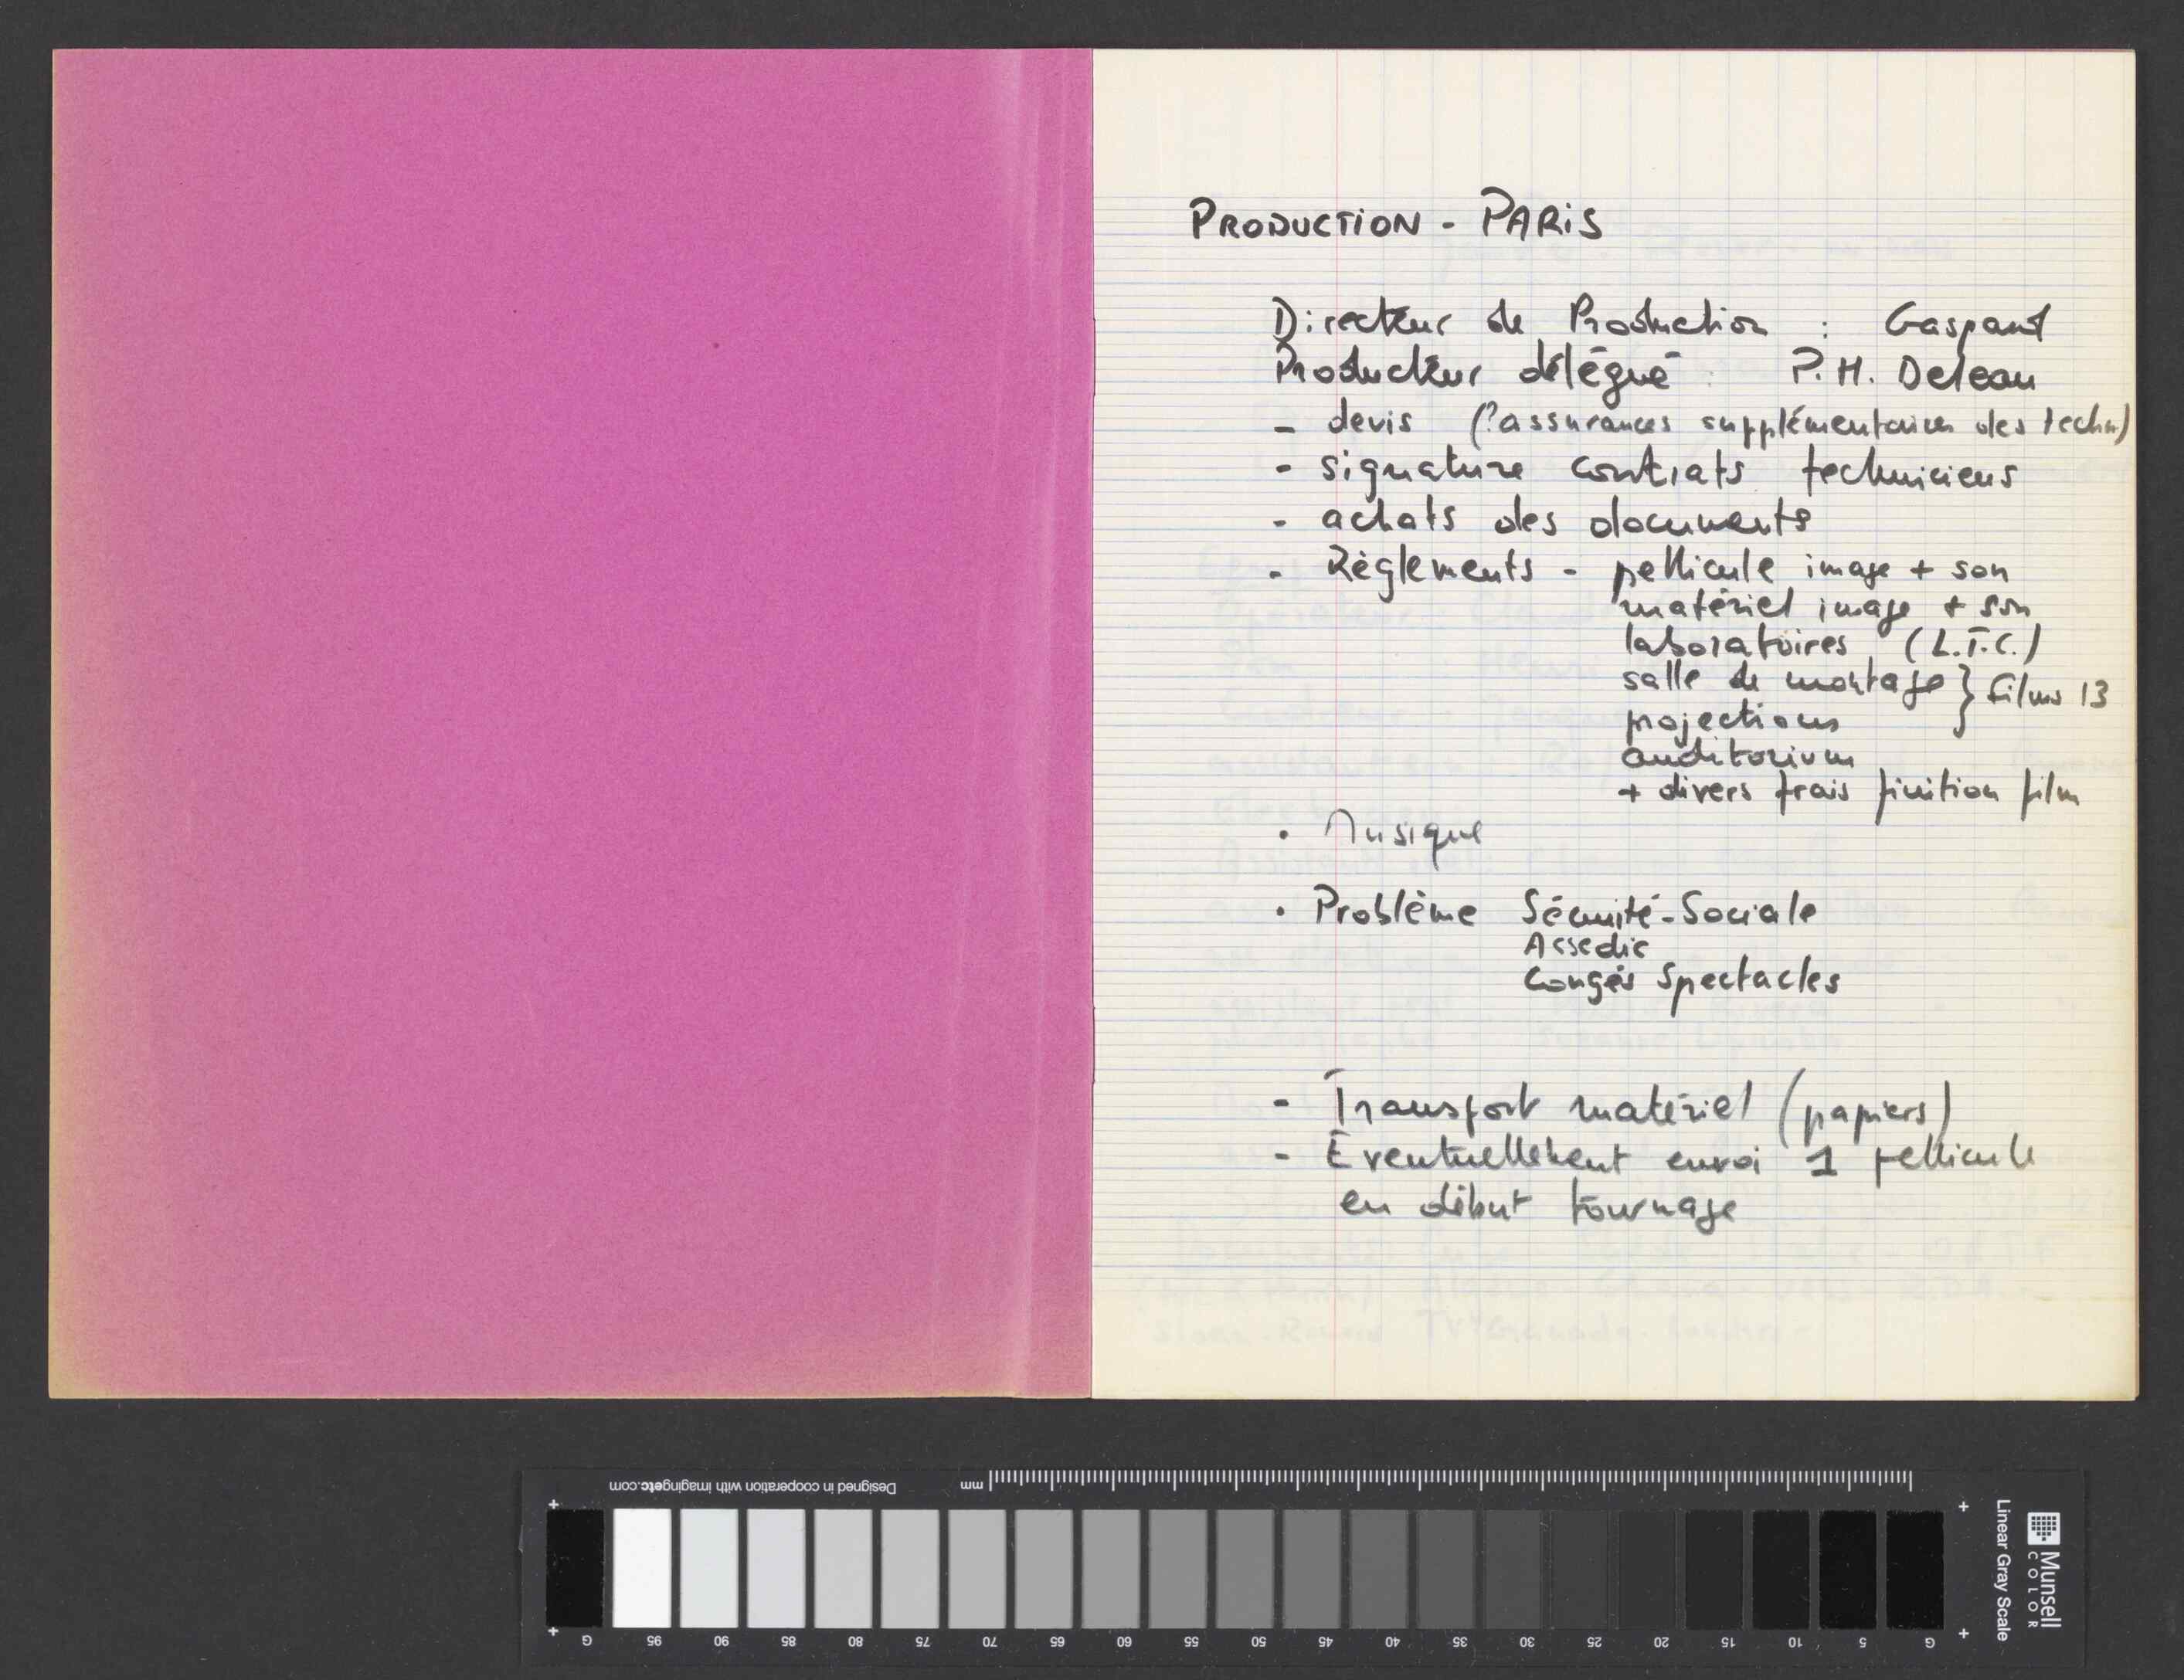 PRODUCTION - PARIS
Directeur de Production : Gaspard
Producteur délégué : P.H. Deleau
- devis (? assurances supplémentaires des techn)
- signature contrats techniciens
- achats des documents
- Règlements - pellicule image + son
matériel image + son
laboratoires (L.T.C.)
salle de montage } films 13
projections
auditorium
+ divers frais finition film
. Musique
. Problème Sécurité-Sociale
Assedic
Congés Spectacles
- Transport matériel (papiers)
- Eventuellement envoi 1 pellicule
en début tournage
Designed in cooperation with imagingetc.com
mm
G 95 90 85 80 75 70 65 60 55 50 45 40 35 30 25 20 15 10 5 G
Linear Gray Scale
Munsell
COLOR